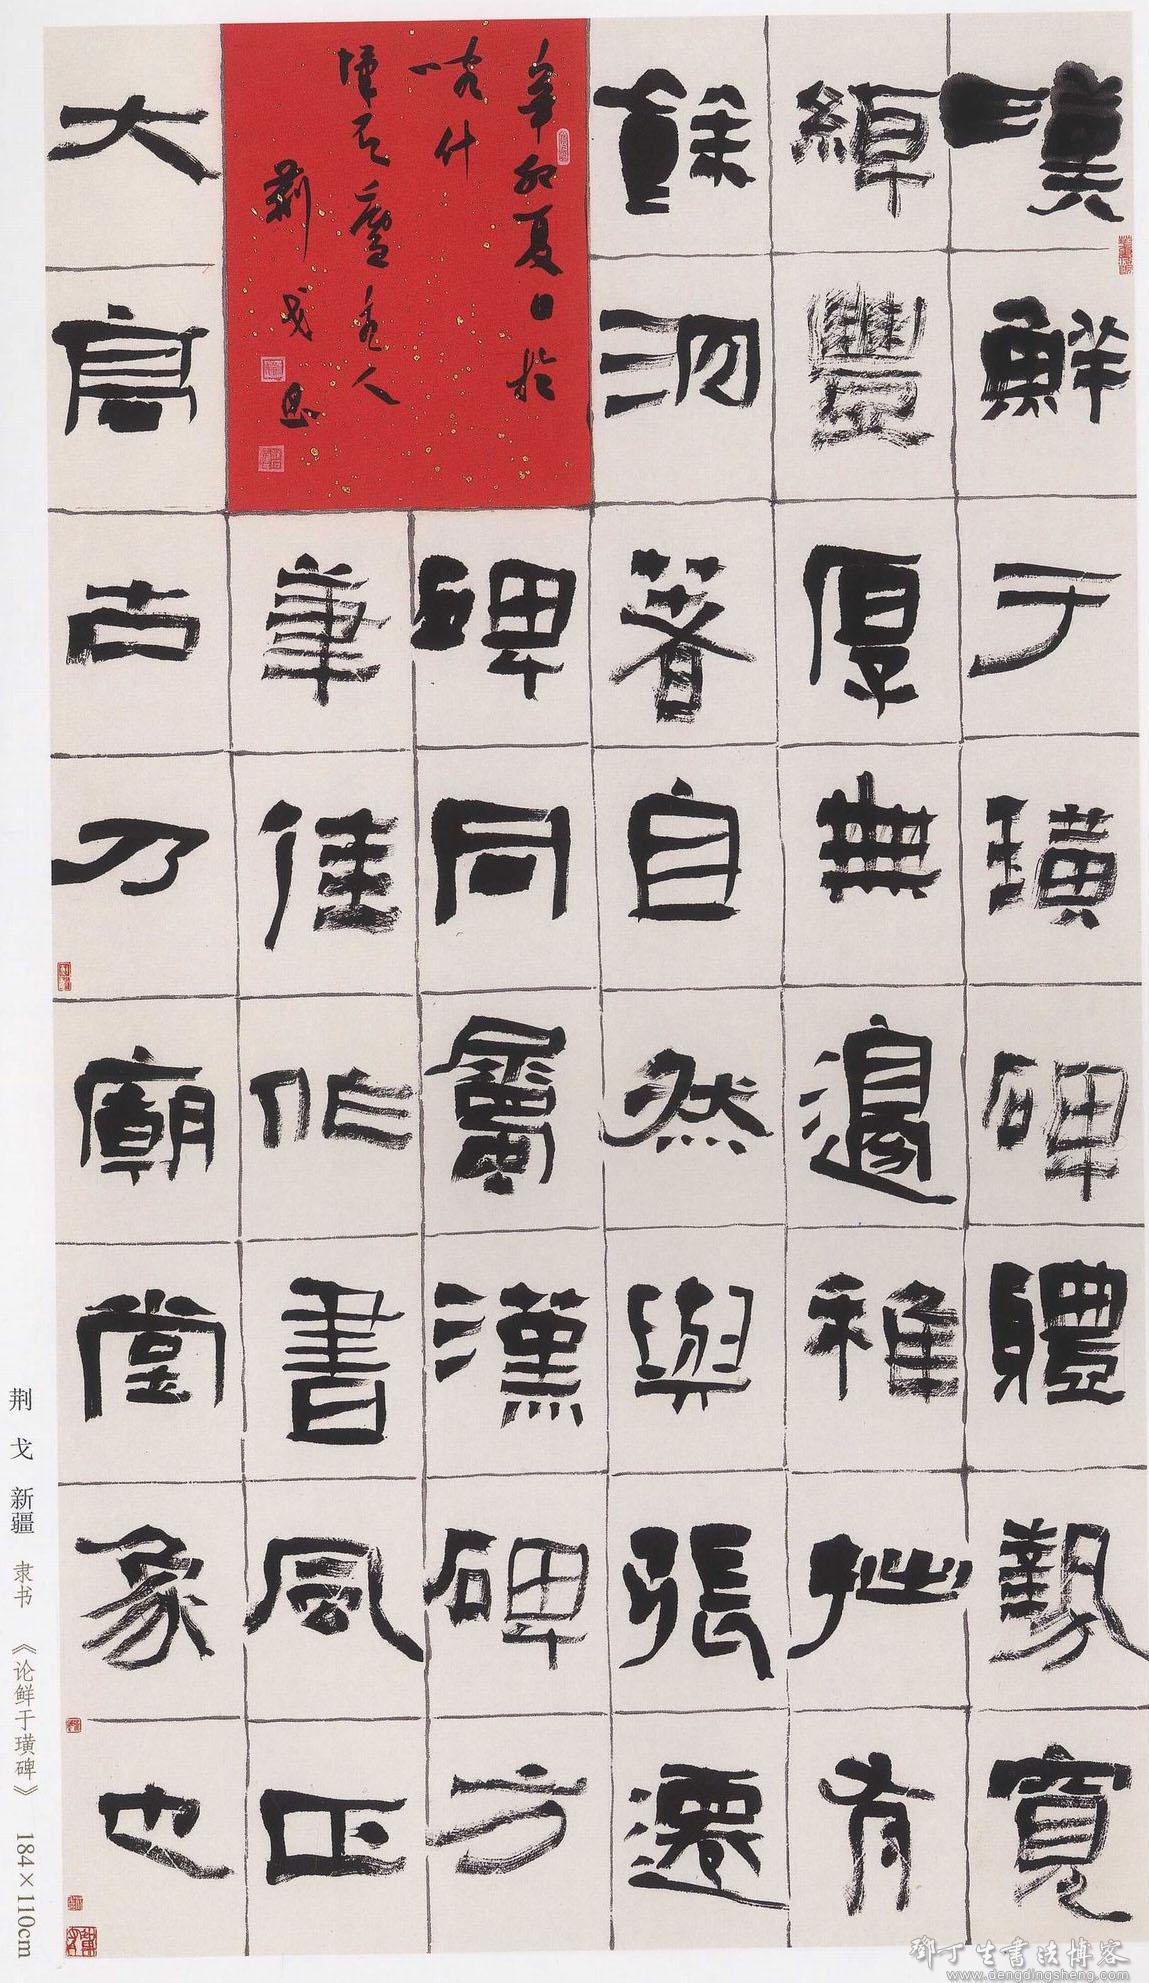 漢鮮于璜碑體勢寬
綽豐厚無邊稚拙有
餘沉著自然與張遷
碑同屬漢碑方
筆佳作書風正
大高古乃廟堂象也
辛卯夏日於
喀什
廬主人
荊戈書
荆戈 新疆 隶书 《论鲜于璜碑》 184×110cm
鄧丁生書法博客
www.dengdingsheng.com